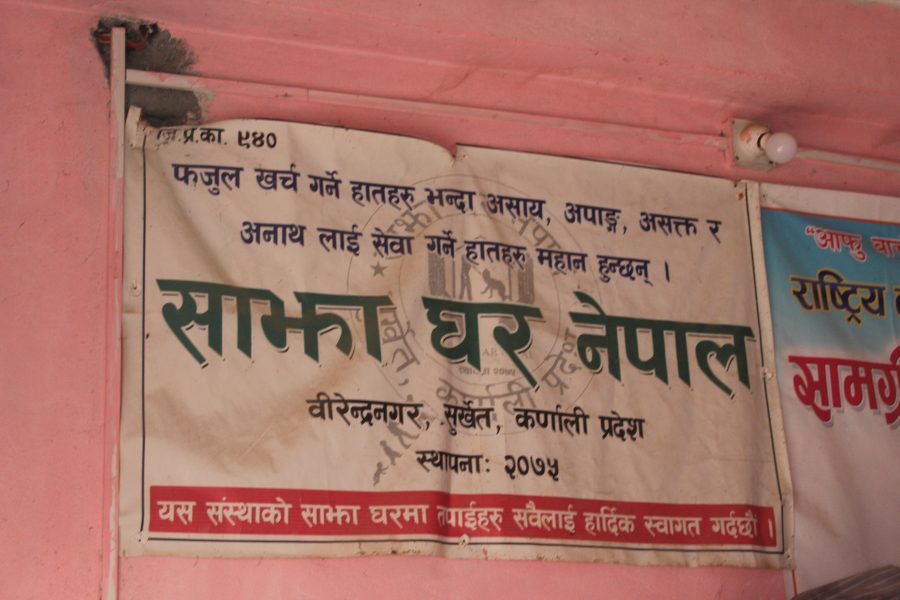 जि.प्र.का. ९४०
फजुल खर्च गर्ने हातहरु भन्दा असाय, अपाङ्ग, असक्त र
अनाथ लाई सेवा गर्ने हातहरु महान हुन्छन् ।
साझा घर नेपाल
वीरेन्द्रनगर, सुर्खेत, कर्णाली प्रदेश
स्थापनाः २०७५
यस संस्थाको साझा घरमा तपाईहरु सवैलाई हार्दिक स्वागत गर्दछौ ।
"आफु
राष्ट्रिय